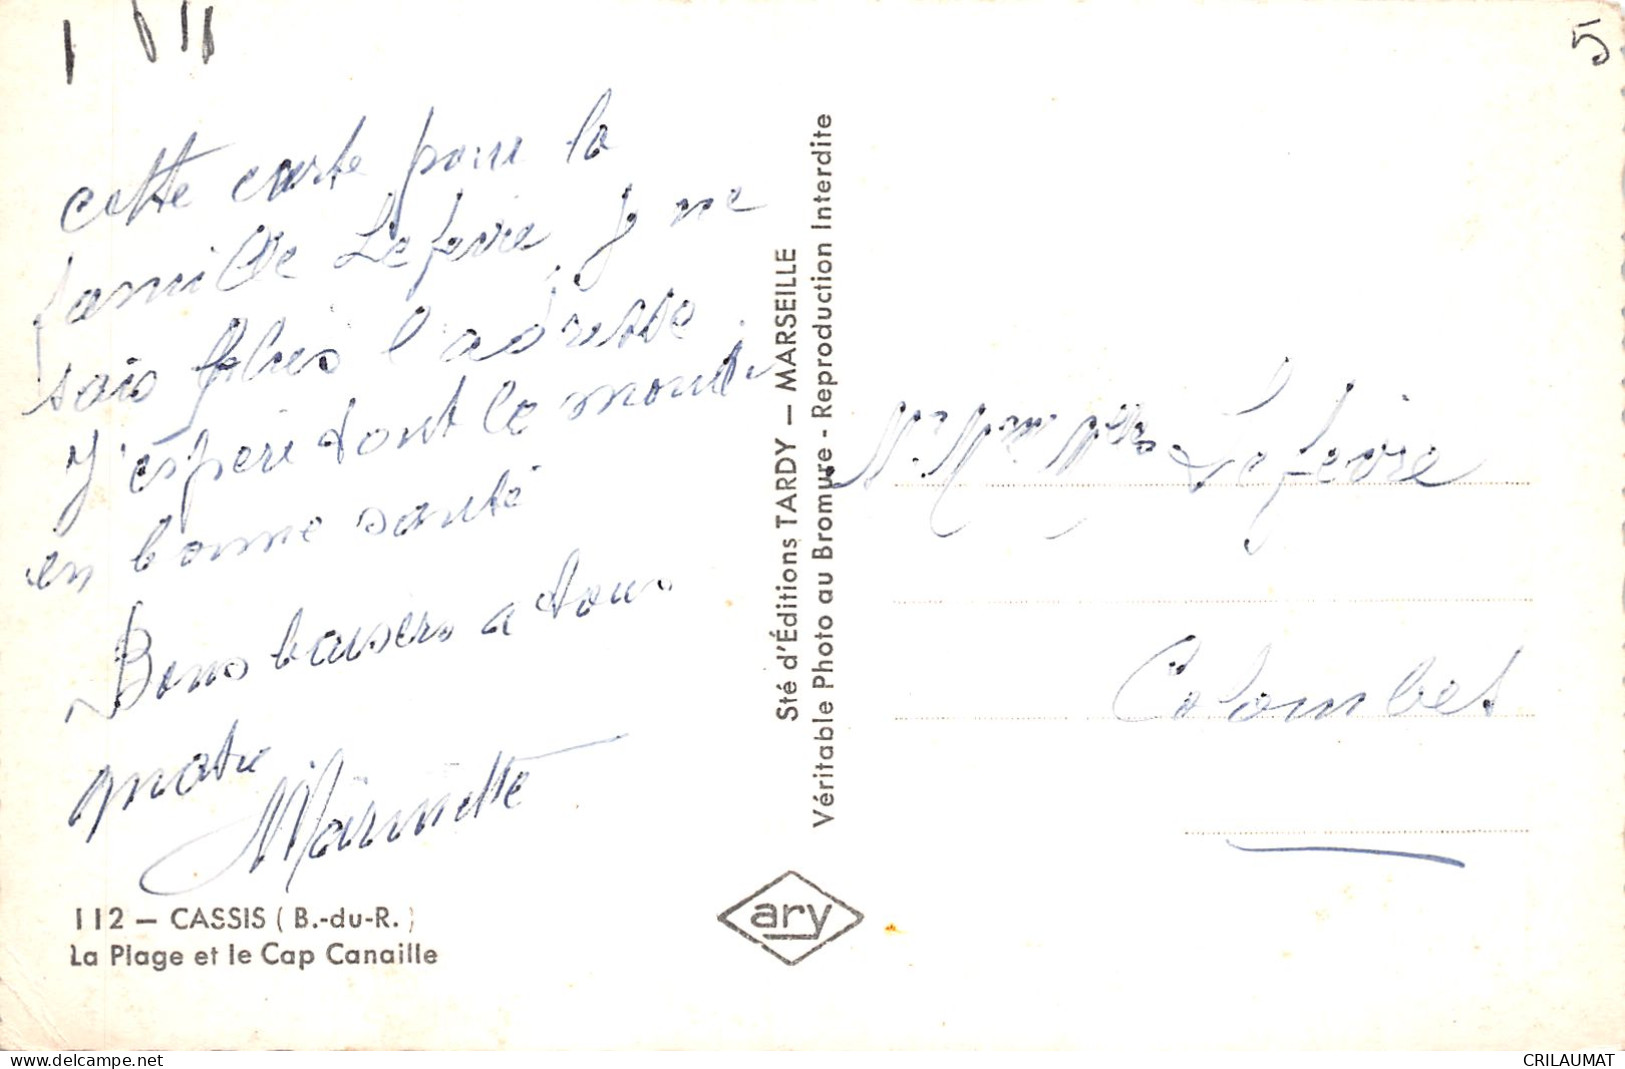 5
cette carte pour la
famille Lefevre, Je ne
sais plus l'adresse.
J'espere tout le monde
en bonne santé
Bons baisers a tous
quatre
Marinette
112 — CASSIS ( B.-du-R. )
La Plage et le Cap Canaille
Sté d'Éditions TARDY — MARSEILLE
Véritable Photo au Bromure - Reproduction Interdite
ary
Mr Mme Mlles Lefevre
Colombes
www.delcampe.net
CRILAUMAT